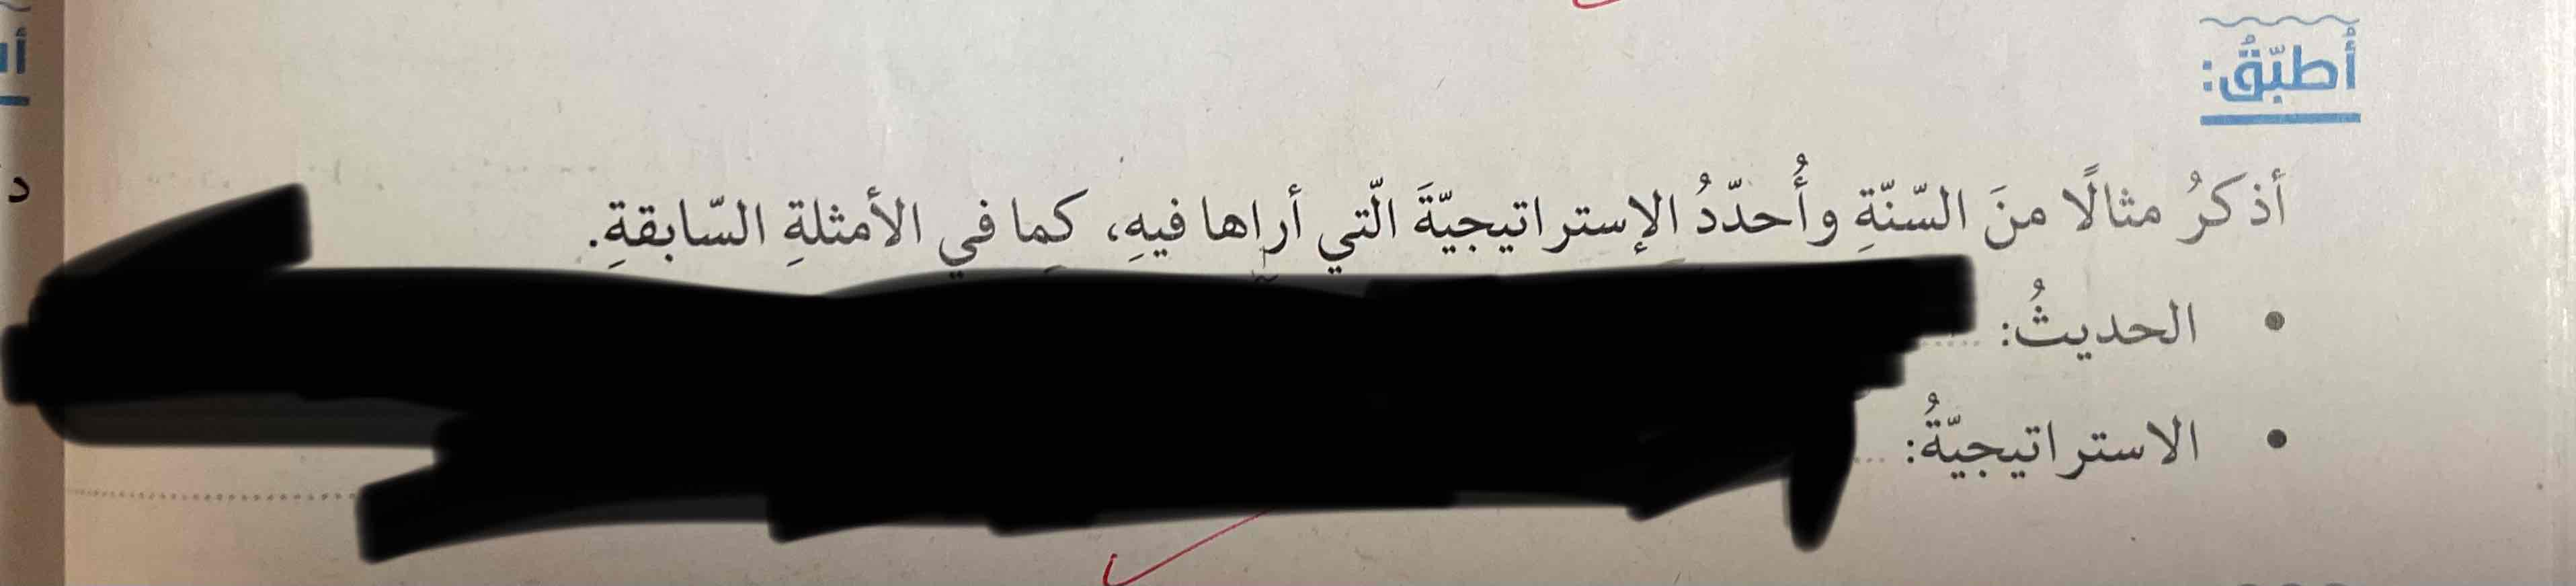 أُطبّقُ:
أذكرُ مثالًا منَ السّنّةِ وأُحدّدُ الإستراتيجيّةَ الّتي أراها فيهِ، كما في الأمثلةِ السّابقةِ.
• الحديثُ:
• الاستراتيجيّةُ: